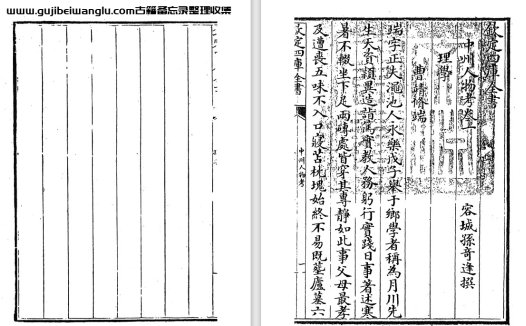 www.gujibeiwanglu.com古籍备忘录整理收集
欽定四庫全書
中州人物考卷一
容城孫竒逢撰
理學
曹靖修端
端字正夫澠池人永樂戊子舉于鄉學者稱為月川先
生天資頴異造詣篤實教人務躬行實踐日事著述寒
暑不輟坐下足兩磚處皆穿其專静如此事父母最孝
及遭喪五味不入口寢苫枕塊始終不易既墓廬墓六
欽定四庫全書
中州人物考
一